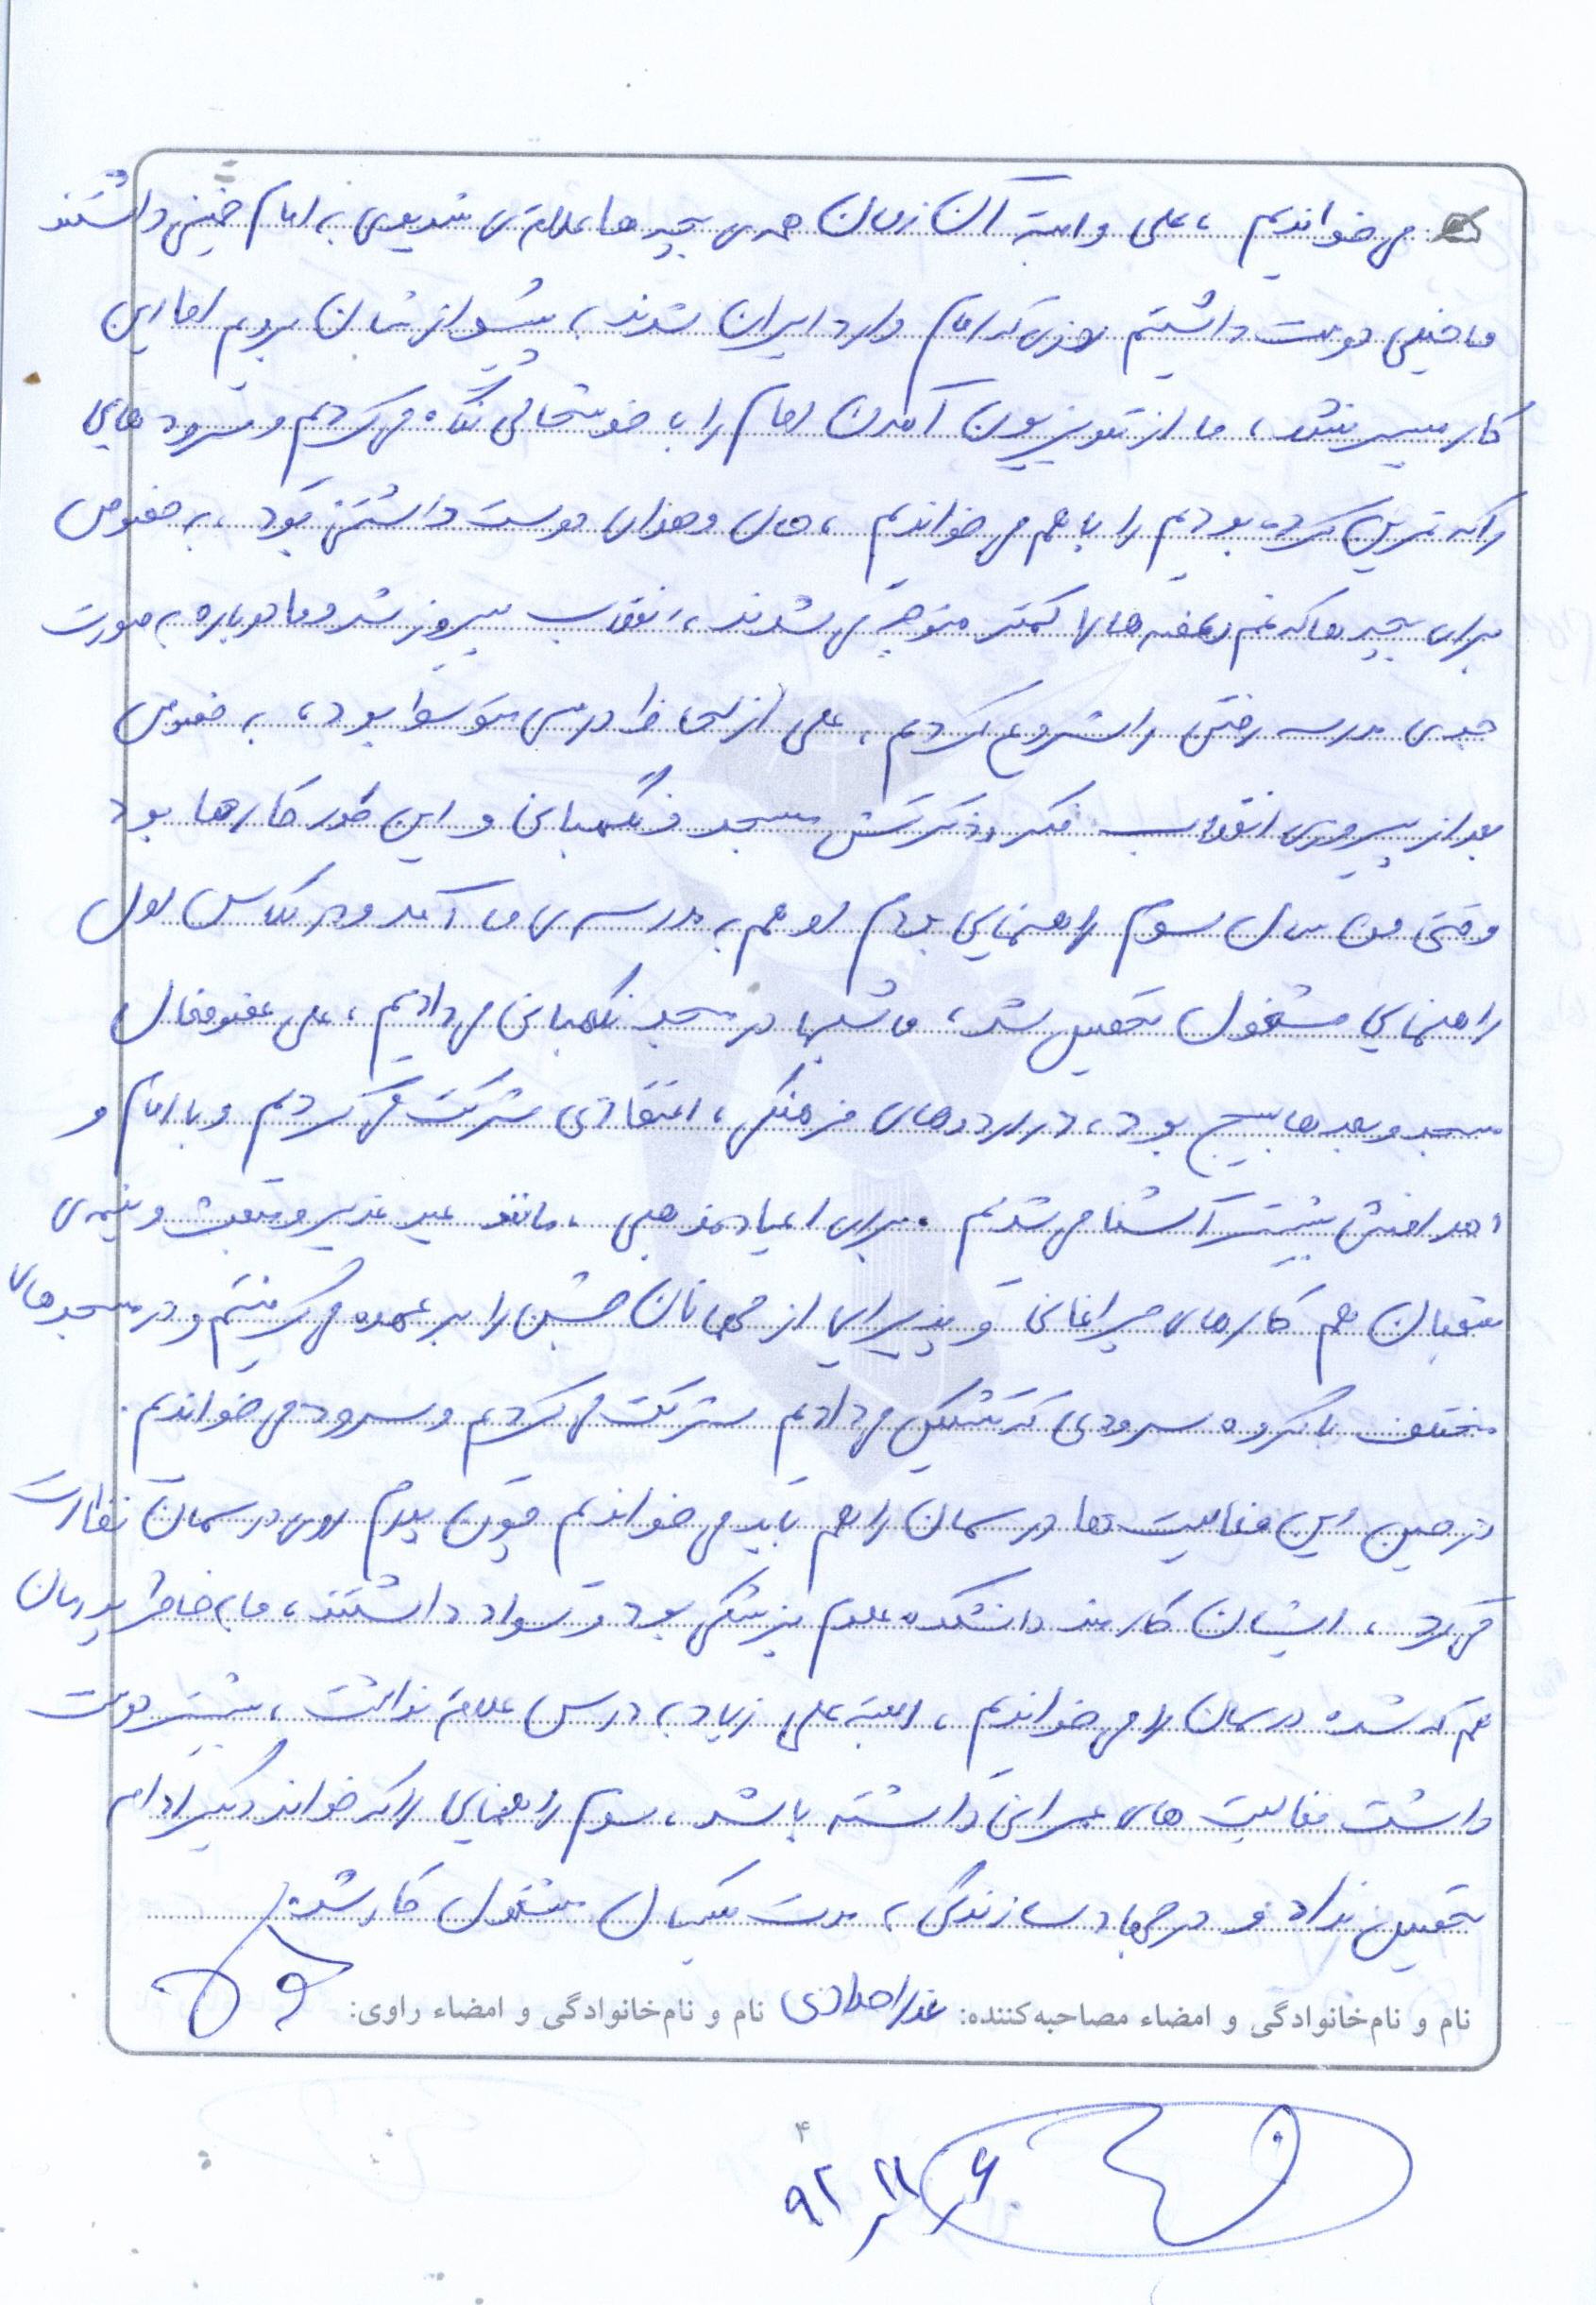 می خواندیم ، علی و البته آن زمان همه ی بچه ها علاقه ی شدیدی به امام خمینی داشتند
ما خیلی دوست داشتیم روزی که امام وارد ایران شدند ، پیشواز شان برویم اما این
کار میسر نشد ، ما از تلویزیون آمدن امام را با خوشحالی نگاه می کردیم و سرود هایی
را که تمرین کرده بودیم را با هم می خواندیم ، حال و هوای دوست داشتنی بود ، به خصوص
برای بچه ها که غم و غصه ها را کمتر متوجه می شدند ، انقلاب پیروز شد و ما دوباره به صورت
جدی مدرسه رفتن را شروع کردیم ، علی از لحاظ درسی متوسط بود ، به خصوص
بعد از پیروزی انقلاب فکر و ذکرش مسجد و نگهبانی و این طور کارها بود
وقتی من سال سوم راهنمایی بودم او هم به مدرسه ی ما آمد و در کلاس اول
راهنمایی مشغول تحصیل شد ، ما شبها در مسجد نگهبانی می دادیم ، علی عضو فعال
مسجد و بعدها بسیج بود ، در اردوهای فرهنگی ، اعتقادی شرکت می کردیم و با امام و
اهدافش بیشتر آشنا می شدیم . برای اعیاد مذهبی ، مانند عید غدیر و مبعث و نیمه ی
شعبان هم کارهای چراغانی و پذیرایی از مهمانان جشن را بر عهده می گرفتیم و در مسجد های
مختلف با گروه سرودی که تشکیل می دادیم شرکت می کردیم و سرود می خواندیم .
در حین این فعالیت ها درسمان را هم باید می خواندیم چون پدرم روی درسمان نظارت
می کرد ، ایشان کارمند دانشکده علوم پزشکی بود و سواد داشتند ، ما به خاطر پدرمان
هم که شده درسمان را می خواندیم ، البته علی زیاد به درس علاقه نداشت ، بیشتر دوست
داشت فعالیت های عمرانی داشته باشد ، سوم راهنمایی را که خواند دیگر ادامه
تحصیل نداد و در جهاد سازندگی به مدت یکسال مشغول کار شد .
نام و نام‌خانوادگی و امضاء مصاحبه‌کننده: نام و نام‌خانوادگی و امضاء راوی:
۴
۹۲ ٫ ۱۱ ٫ ۶